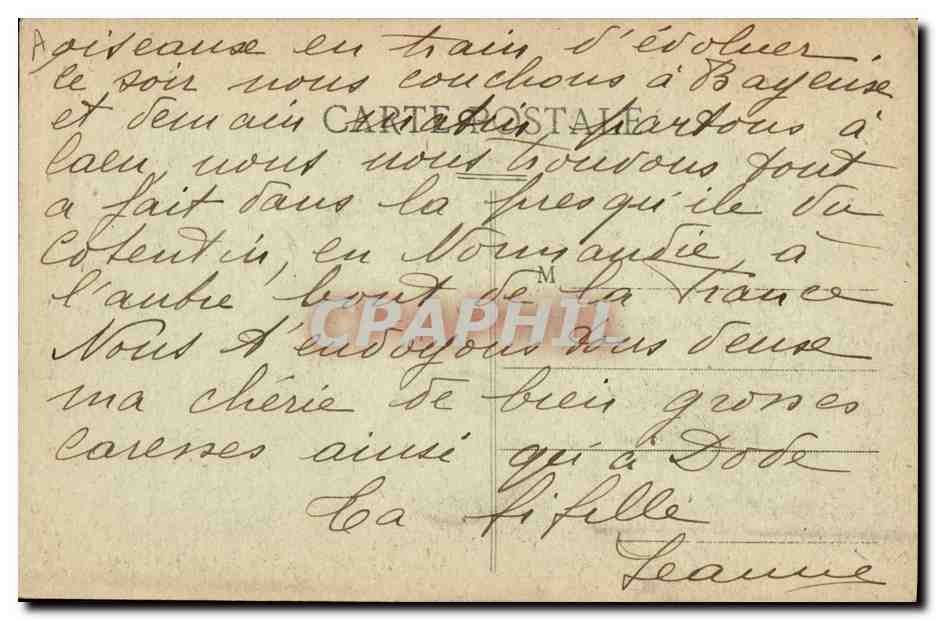 oiseaux en train d'évoluer.
ce soir nous couchons à Bayeux
et demain matin partons à
CARTE POSTALE
Caen, nous nous trouvons tout
a fait dans la presqu'ile du
cotentin, en Normandie, à
M
l'autre bout de la France
CPAPHIL
Nous t'envoyons tous deux
ma chérie de bien grosses
caresses ainsi qu'à Dode
Ta fifille
Jeanne